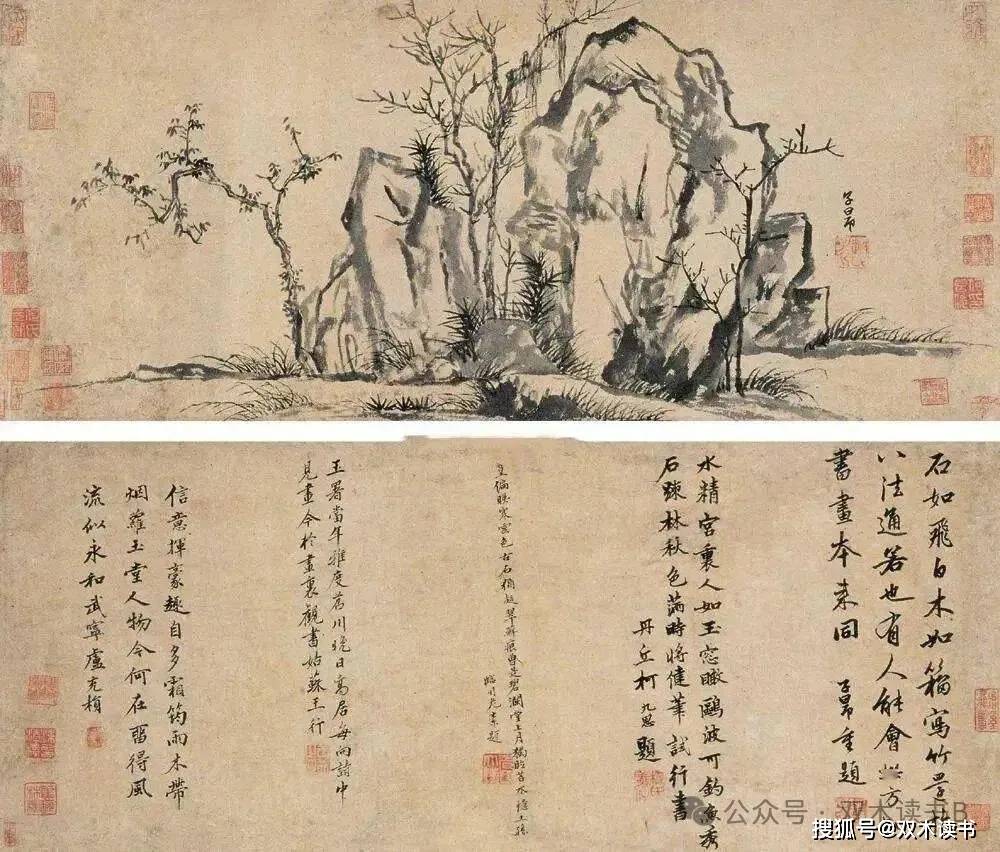 子昂
石如飛白木如籀寫竹還於
八法通若也有人能會此方
書畫本來同 子昂重題
水精宮裏人如玉窓瞰鷗波可釣魚秀
石疎林秋色滿時將健筆試行書
丹丘柯九思題
偏映寒雲色古石猶凝翠蘚痕曾是碧瀾堂上月苕水憶王孫
臨川危素題
玉署當年雅度苕川晚日高居每向詩中
見畫今於畫裏觀書姑蘇王行
信意揮豪趣自多霜筠雨木帶
烟蘿玉堂人物今何在留得風
流似永和武寧盧充
公众号·双木读书B
搜狐号@双木读书